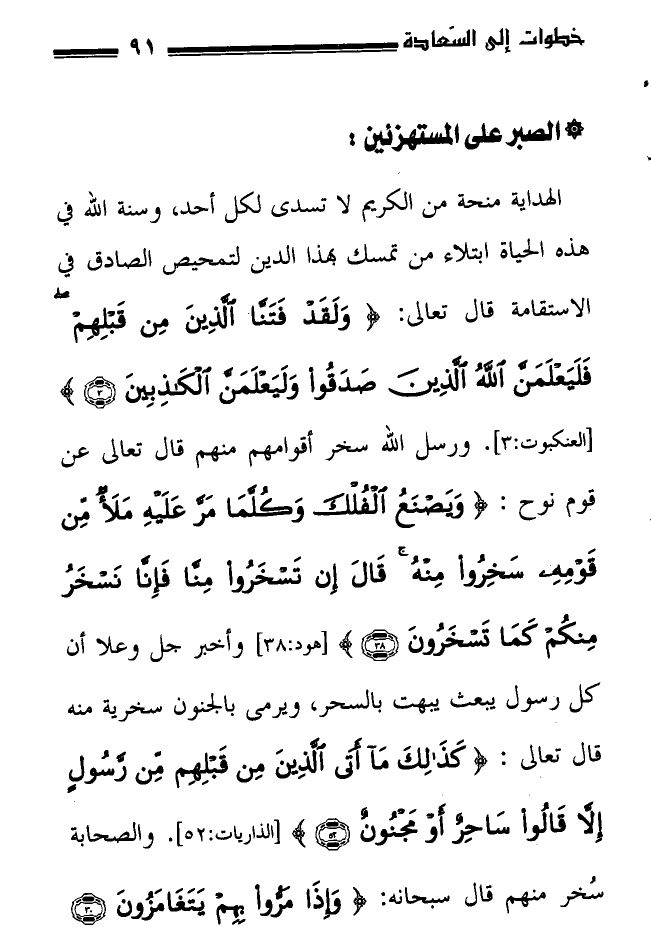 خطوات إلى السعادة ٩١
الصبر على المستهزئين :
الهداية منحة من الكريم لا تسدى لكل أحد، وسنة الله في
هذه الحياة ابتلاء من تمسك بهذا الدين لتمحيص الصادق في
الاستقامة قال تعالى: ﴿ وَلَقَدْ فَتَنَّا ٱلَّذِينَ مِن قَبْلِهِمْ ۖ
فَلَيَعْلَمَنَّ ٱللَّهُ ٱلَّذِينَ صَدَقُواْ وَلَيَعْلَمَنَّ ٱلْكَٰذِبِينَ ٣ ﴾
[العنكبوت:٣]. ورسل الله سخر أقوامهم منهم قال تعالى عن
قوم نوح : ﴿ وَيَصْنَعُ ٱلْفُلْكَ وَكُلَّمَا مَرَّ عَلَيْهِ مَلَأٌ مِّن
قَوْمِهِۦ سَخِرُواْ مِنْهُ ۚ قَالَ إِن تَسْخَرُواْ مِنَّا فَإِنَّا نَسْخَرُ
مِنكُمْ كَمَا تَسْخَرُونَ ٣٨ ﴾ [هود:٣٨] وأخبر جل وعلا أن
كل رسول يبعث يبهت بالسحر، ويرمى بالجنون سخرية منه
قال تعالى : ﴿ كَذَٰلِكَ مَآ أَتَى ٱلَّذِينَ مِن قَبْلِهِم مِّن رَّسُولٍ
إِلَّا قَالُواْ سَاحِرٌ أَوْ مَجْنُونٌ ٥٢ ﴾ [الذاريات:٥٢]. والصحابة
سُخر منهم قال سبحانه: ﴿ وَإِذَا مَرُّواْ بِهِمْ يَتَغَامَزُونَ ٣٠